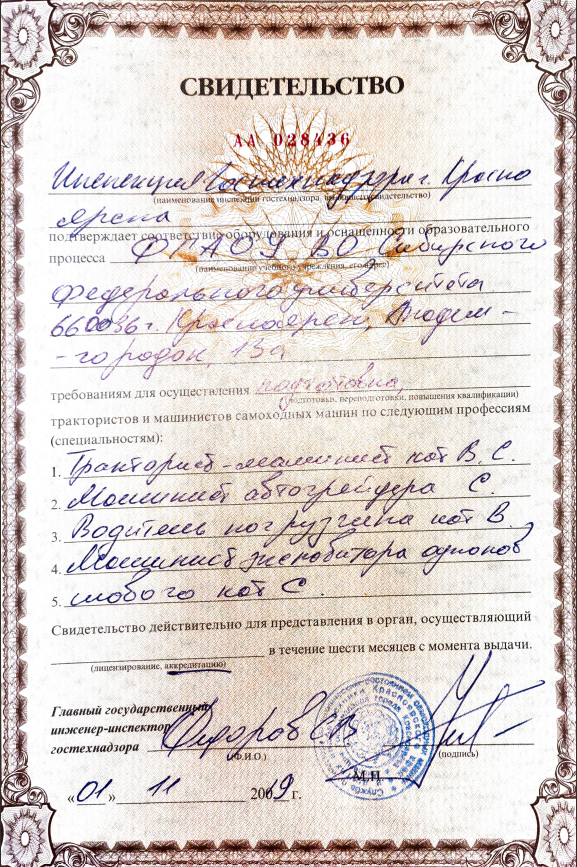 СВИДЕТЕЛЬСТВО
АА 028436
Инспекция Гостехнадзора г. Красно
(наименование инспекции гостехнадзора, выдавшей свидетельство)
ярска
подтверждает соответствие оборудования и оснащенности образовательного
процесса ФГАОУ ВО Сибирского
(наименование учебного учреждения, его адрес)
Федерального университета
660036 г. Красноярск, Академ-
-городок, 13а
требованиям для осуществления подготовка
(подготовки, переподготовки, повышения квалификации)
трактористов и машинистов самоходных машин по следующим профессиям
(специальностям):
1. Тракторист-машинист кат В. С.
2. Машинист автогрейдера С.
3. Водитель погрузчика кат В.
4. Машинист экскаватора одноков
5. шового кат С.
Свидетельство действительно для представления в орган, осуществляющий
в течение шести месяцев с момента выдачи.
(лицензирование, аккредитацию)
Главный государственный
инженер-инспектор
гостехнадзора Федоров СВ
(Ф.И.О.) (подпись)
М.П.
«01» 11 2019 г.